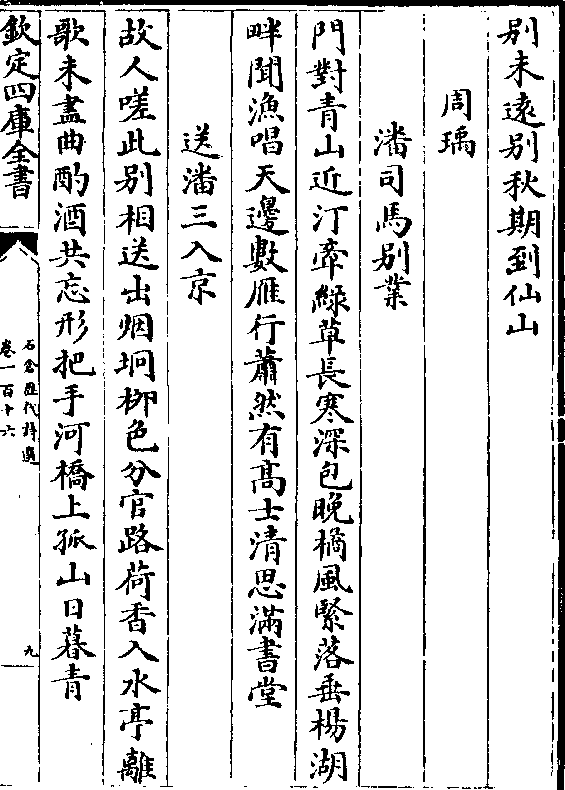 別未遠別秋期到仙山
周瑀
潘司馬別業
門對青山近汀牽綠草長寒深包晚橘風緊落垂楊湖
畔聞漁唱天邊數雁行蕭然有髙士清思滿書堂
送潘三入京
故人嗟此别相送出烟坰栁色分官路荷香入水亭離
歌未盡曲酌酒共忘形把手河橋上孤山日暮青
欽定四庫全書
石倉歷代詩選
卷一百十六
九